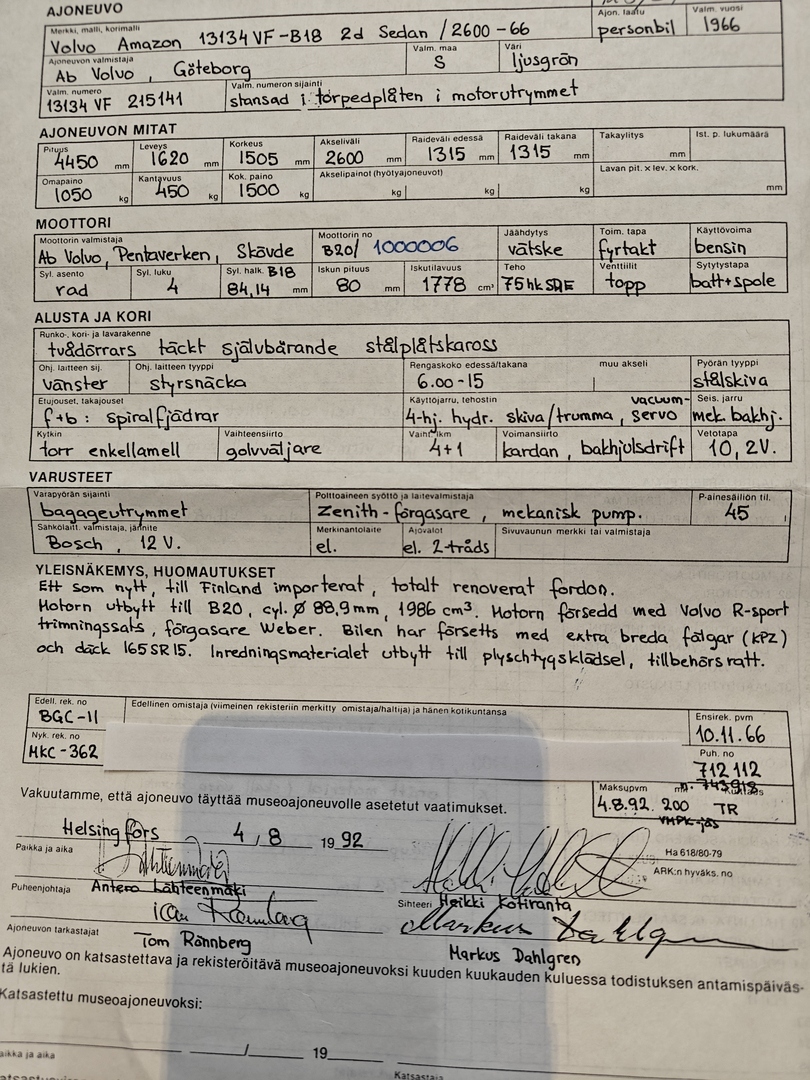 AJONEUVO
Merkki, malli, korimalli
Volvo Amazon 13134 VF-B18 2d Sedan /2600-66
Ajon. laatu
personbil
Valm. vuosi
1966
Ajoneuvon valmistaja
Ab Volvo, Göteborg
Valm. maa
S
Väri
ljusgrön
Valm. numero
13134 VF 215141
Valm. numeron sijainti
stansad i torpedplåten i motorutrymmet
AJONEUVON MITAT
Pituus 4450 mm
Leveys 1620 mm
Korkeus 1505 mm
Akseliväli 2600 mm
Raideväli edessä 1315 mm
Raideväli takana 1315 mm
Takaylitys mm
Ist. p. lukumäärä
Omapaino 1050 kg
Kantavuus 450 kg
Kok. paino 1500 kg
Akselipainot (hyötyajoneuvot) kg kg kg
Lavan pit. x lev. x kork. mm
MOOTTORI
Moottorin valmistaja
Ab Volvo, Pentaverken, Skövde
Moottorin no
B20/ 1000006
Jäähdytys
vätske
Toim. tapa
fyrtakt
Käyttövoima
bensin
Syl. asento
rad
Syl. luku
4
Syl. halk. B18
84,14 mm
Iskun pituus
80 mm
Iskutilavuus
1778 cm³
Teho
75 hk SAE
Venttiilit
topp
Sytytystapa
batt+spole
ALUSTA JA KORI
Runko-, kori- ja lavarakenne
tvådörrars täckt självbärande stålplåtskaross
Ohj. laitteen sij.
vänster
Ohj. laitteen tyyppi
styrsnäcka
Rengaskoko edessä/takana
6.00-15
muu akseli
Pyörän tyyppi
stålskiva
Etujouset, takajouset
f+b: spiralfjädrar
Käyttöjarru, tehostin
4-hj. hydr. skiva/trumma, vacuum-servo
Seis. jarru
mek. bakhj.
Kytkin
torr enkellamell
Vaihteensiirto
golvväljare
Vaiht. lkm
4+1
Voimansiirto
kardan, bakhjulsdrift
Vetotapa
10, 2V.
VARUSTEET
Varapyörän sijainti
bagageutrymmet
Polttoaineen syöttö ja laitevalmistaja
Zenith-förgasare, mekanisk pump.
P-ainesäiliön til.
45
Sähkölaitt. valmistaja, jännite
Bosch, 12 V.
Merkinantolaite
el.
Ajovalot
el. 2-tråds
Sivuvaunun merkki tai valmistaja
YLEISNÄKEMYS, HUOMAUTUKSET
Ett som nytt, till Finland importerat, totalt renoverat fordon.
Motorn utbytt till B20, cyl. Ø 88,9mm, 1986 cm³. Motorn försedd med Volvo R-sport
trimningssats, förgasare Weber. Bilen har försetts med extra breda fälgar (KPZ)
och däck 165SR15. Inredningsmaterialet utbytt till plyschtygsklädsel, tillbehörsratt.
Edell. rek. no
BGC-11
Edellinen omistaja (viimeinen rekisteriin merkitty omistaja/haltija) ja hänen kotikuntansa
Ensirek. pvm
10.11.66
Nyk. rek. no
MKC-362
Puh. no
712 112
Maksupvm
4.8.92. 200 TR
Vakuutamme, että ajoneuvo täyttää museoajoneuvolle asetetut vaatimukset.
Helsingfors 4 / 8 19 92
Paikka ja aika
Ha 618/80-79
ARK:n hyväks. no
Puheenjohtaja Antero Lähteenmäki
Sihteeri Heikki Kotiranta
Ajoneuvon tarkastajat
Tom Rönnberg
Markus Dahlgren
Markus Dahlgren
Ajoneuvo on katsastettava ja rekisteröitävä museoajoneuvoksi kuuden kuukauden kuluessa todistuksen antamispäiväs-
tä lukien.
Katsastettu museoajoneuvoksi:
/ 19
Paikka ja aika
Katsastaja